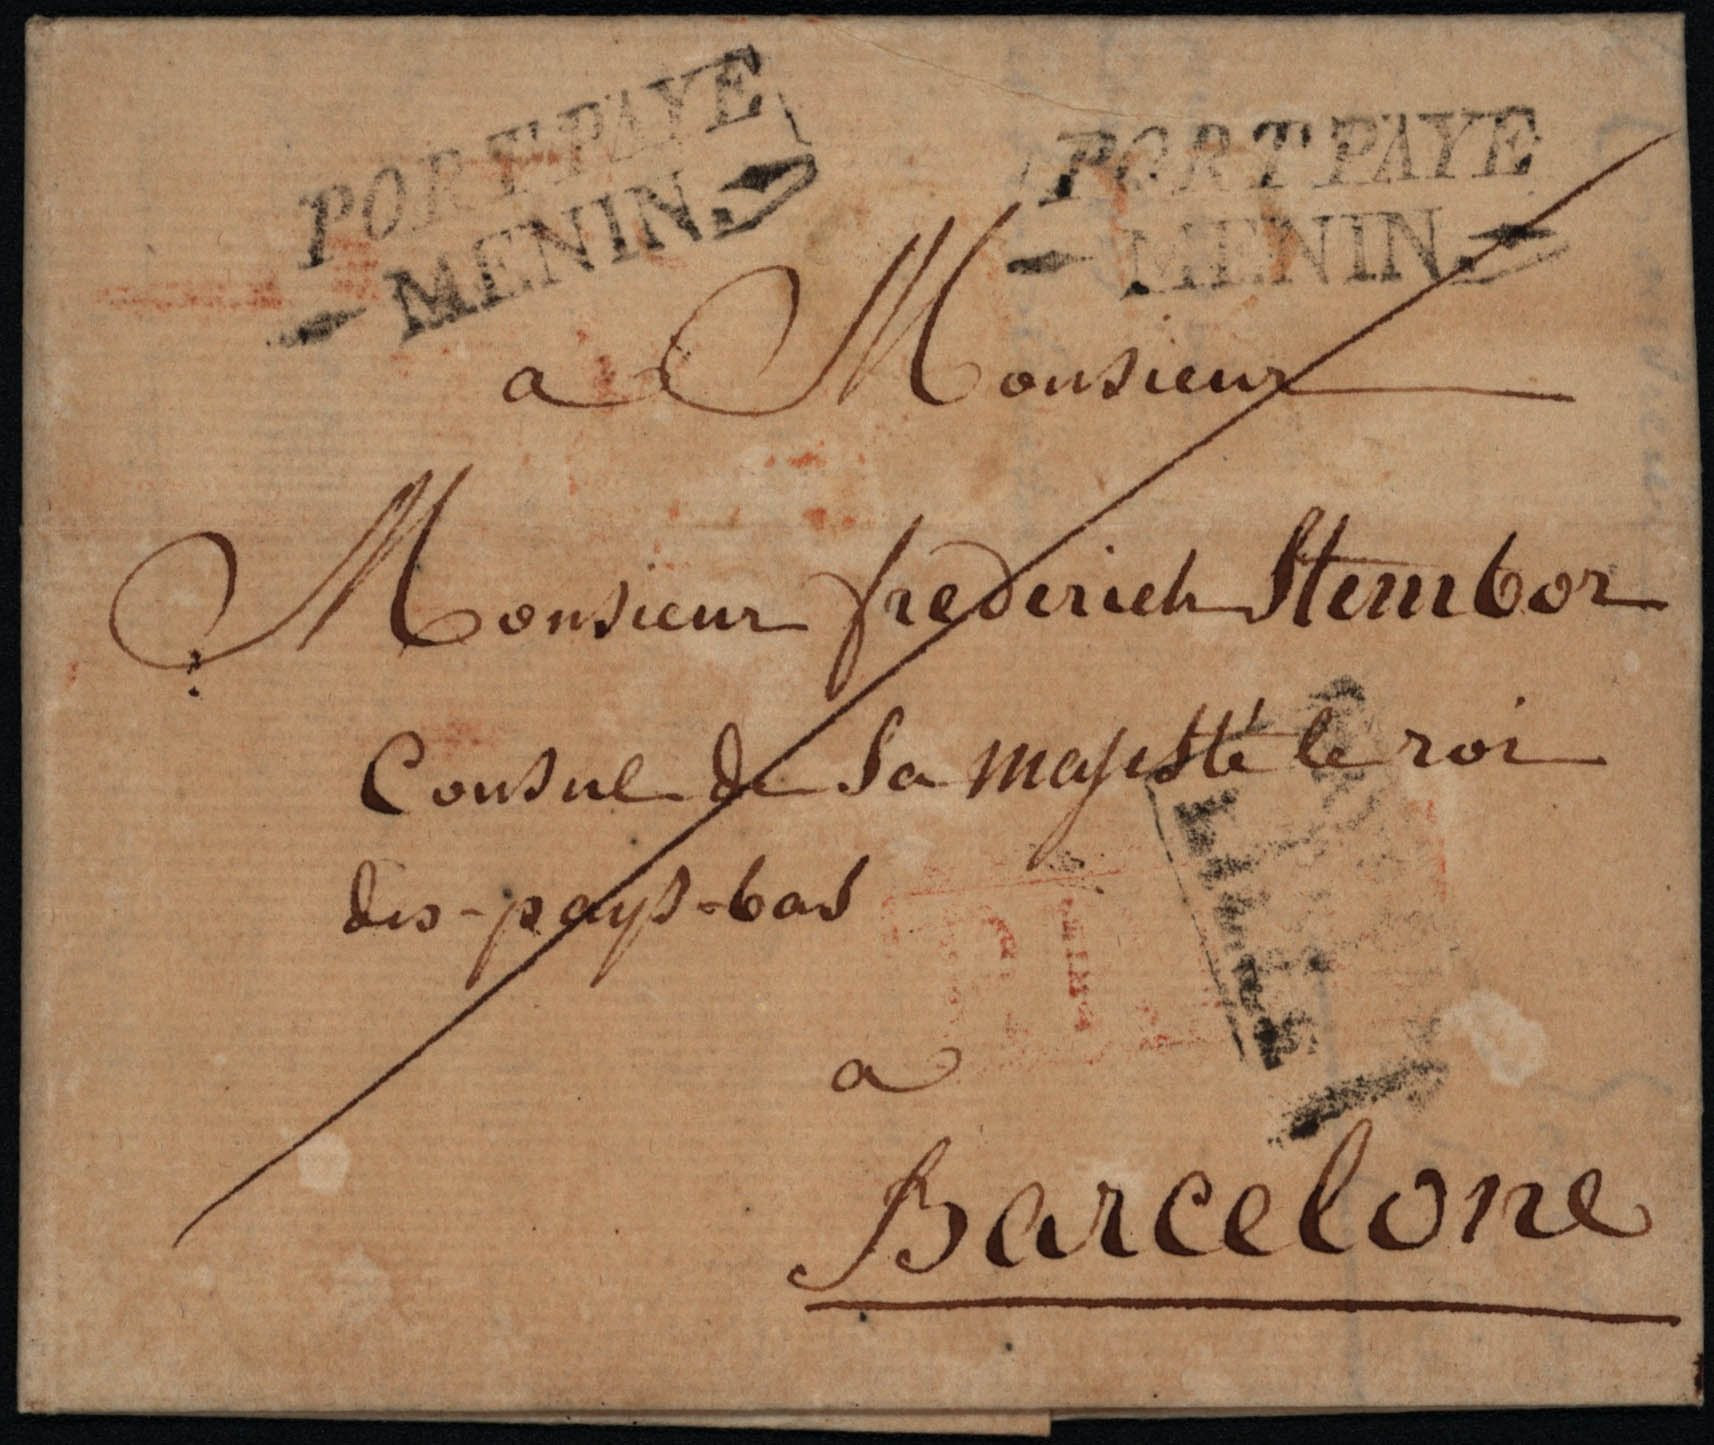 PORT PAYE
MENIN
PORT PAYE
MENIN
a Monsieur
Monsieur frederich Stembor
Consul de Sa majesté le roi
des-pays-bas
a
Barcelone